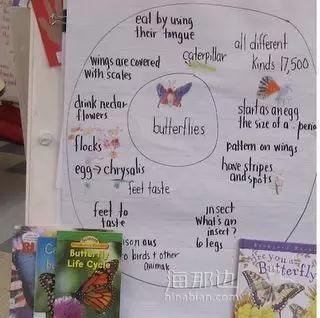 eat by using
their tongue
wings are covered
with scales
caterpillar
all different
kinds 17,500
drink nectar
flowers
butterflies
start as an egg
the size of a . perio
flocks
pattern on wings
egg → chrysalis
have stripes
and spots
feet taste
feet to
taste
insect
What's an
insect?
6 legs
onous
to birds + other
animals
Butterfly
Life Cycle
Are you a
Butterfly
海那边
hinabian.com